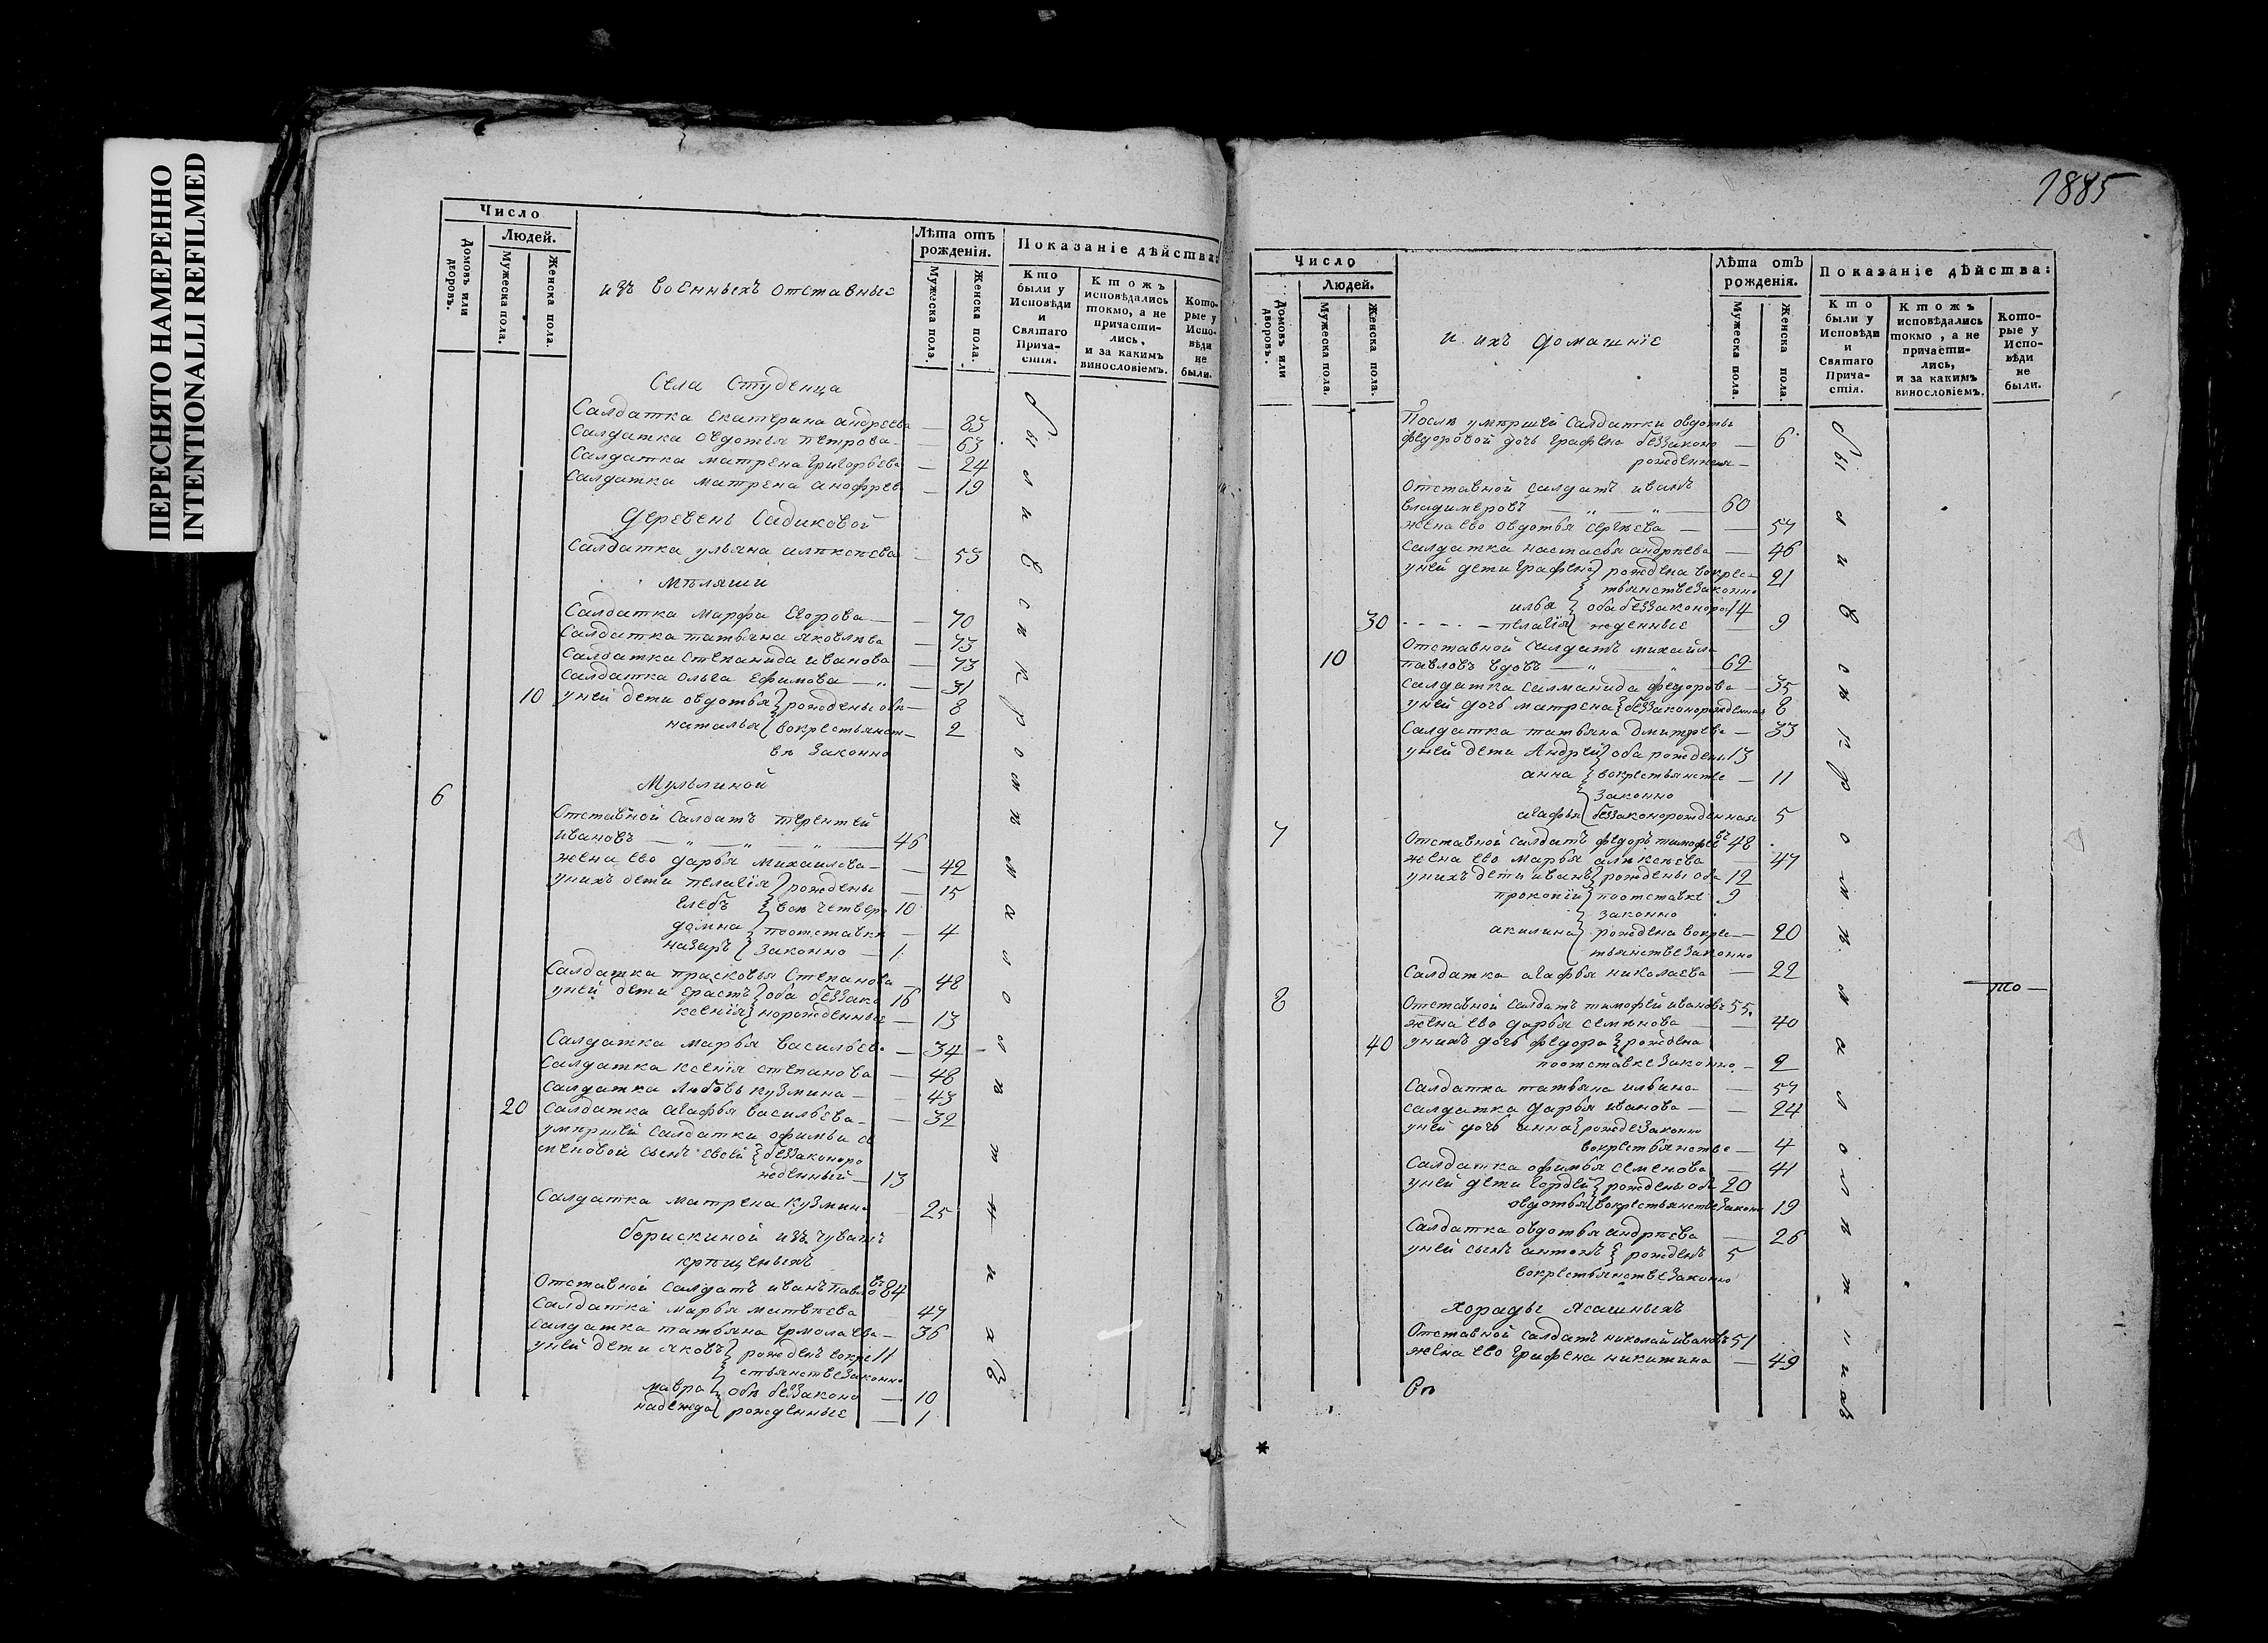 ПЕРЕСНЯТО НАМЕРЕННО
INTENTIONALLI REFILMED
Число
Людей.
Домовъ или дворовъ.
Мужеска пола.
Женска пола.
изъ военныхъ отставные
Лѣта отъ рожденія.
Мужеска пола.
Женска пола.
Показаніе дѣйства:
Кто были у Исповѣди и Святаго Причастія.
Ктожъ исповѣдались токмо, а не причастились, и за какимъ винословіемъ.
Которые у Исповѣди не были.
Села Студенца
Салдатка Екатерина андреева — 83
Салдатка Овдотья петрова — 63
Салдатка матрена григорьева — 24
Салдатка матрена анофрев — 19
Деревень Садиковой
Салдатка ульяна алѣксѣева 53
Мѣляши
Салдатка Марфа Егорова — 70
Салдатка татьяна яковлѣва — 73
Салдатка Степанида иванова — 73
Салдатка Ольга Ефимова — 31
10 уней дети овдотья рождены обѣ — 8
наталья вокрестьянст — 2
вѣ законно
Мульлиной
6
Отставной Салдатъ терентей
ивановъ — 46
жена ево дарья михаилова — 42
унихъ дети пелагія рождены — 15
глебъ все четверо 10
домна поотставки — 4
назаръ законно — 1
Салдатка прасковья Степанова — 48
уней дети ерастъ оба беззако 16
ксенія норожденные — 13
Салдатка марья васильев. — 34
Салдатка ксенія степанова — 48
Салдатка Любовь кузмина — 43
20 Салдатка агафья васильева — 32
умѣршей Салдатки офимьи се
меновой сынъ евсей беззаконоро
жденный — 13
Салдатка матрена кузмина 25
борискиной изъ чувашъ
крѣщеныхъ
Отставной салдатъ иванъ павловъ 84
Салдатка марья матвѣева 47
Салдатка татьяна ермолаева — 36
уней дети яковъ рожденъ вокре 11
стьянстве законно
мавра обѣ беззаконо — 10
надежда рожденные — 1
были в исповѣди
1885
Число
Людей.
Домовъ или дворовъ.
Мужеска пола.
Женска пола.
и ихъ домашніе
Лѣта отъ рожденія.
Мужеска пола.
Женска пола.
Показаніе дѣйства:
Кто были у Исповѣди и Святаго Причастія.
Ктожъ исповѣдались токмо, а не причастились, и за какимъ винословіемъ.
Которые у Исповѣди не были.
Послѣ умѣршей Салдатки овдотьи
федоровой дочь графена беззаконо — 6
рожденная —
Отставной салдатъ иванъ
владимеровъ — 60
жена ево овдотья сергѣева — 57
Салдатка настасья андрѣева — 46
уней дети графена рождена вокрес 21
тьянстве законно
илья оба беззаконоро 14
30 пелагія жденные 9
Отставной салдатъ михайла
10 павловъ вдовъ — 62
Салдатка салманида федорова — 35
уней дочь матрена беззаконорожденная 8
Салдатка татьяна дмитрева — 33
уней дети Андрей оба рождены 13
анна вокрестьянстве — 11
законно
агафья беззаконорожденная 5
7 Отставной салдатъ федоръ тимофѣевъ 48
жена ево марья алѣксѣева 47
унихъ дети иванъ рождены оба 12
прокопій поотставке 9
законно
акилина рождена вокрес — 20
тьянстве законно
Салдатка агафья николаева — 22
то —
8 Отставной салдатъ тимофей ивановъ 55
жена ево дарья семѣнова — 40
40 унихъ дочь федора рождена
поотставке законно — 2
Салдатка татьяна ильина — 57
Салдатка дарья иванова — 24
уней дочь анна рожде законно
вокрестьянстве — 4
Салдатка офимья семенова — 41
уней дети гордей рождены оба 20
овдотья вокрестьянстве законно 19
Салдатка овдотья андрѣева — 26
уней сынъ антонъ рожденъ 5
вокрестьянстве законно
Хорады ясашныхъ
Отставной салдатъ николай ивановъ 51
жена ево графена никитина — 49
*